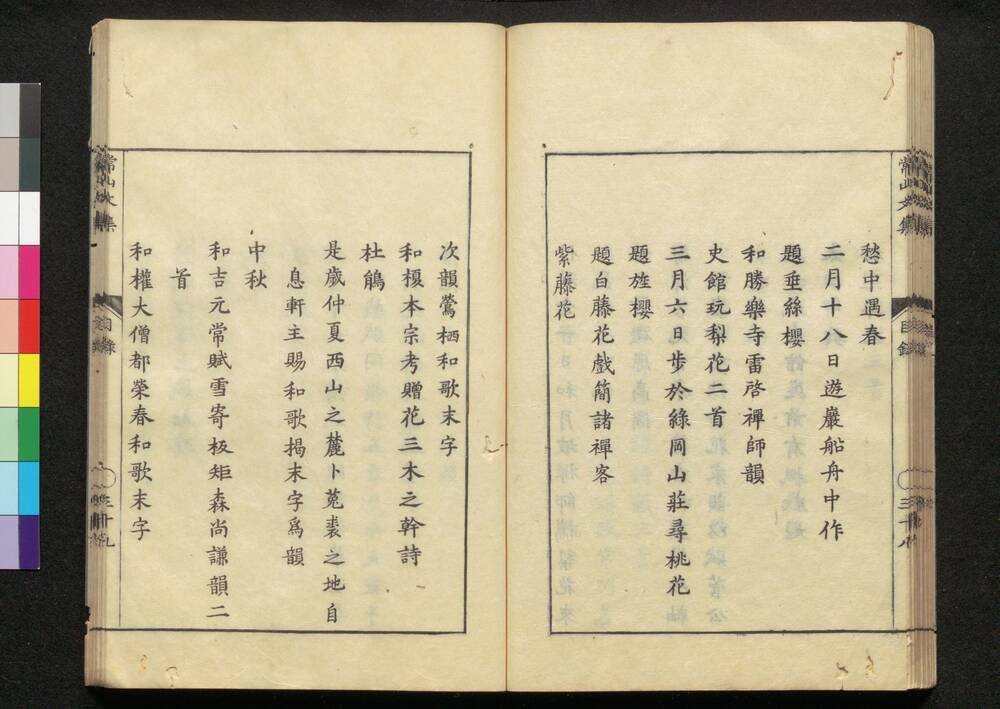 愁中遇春
二月十八日遊巖船舟中作
題垂絲櫻
和勝樂寺雷啓禪師韻
史館玩梨花二首
三月六日步於綠岡山莊尋桃花
題旌櫻
題白藤花戲簡諸禪客
紫藤花
次韻鶯栖和歌末字
和榎本宗考贈花三木之幹詩
杜鵑
是歲仲夏西山之麓卜菟裘之地自
息軒主賜和歌揭末字爲韻
中秋
和吉元常賦雪寄板矩森尚謙韻二
首
和權大僧都榮春和歌末字
常山文集
目錄